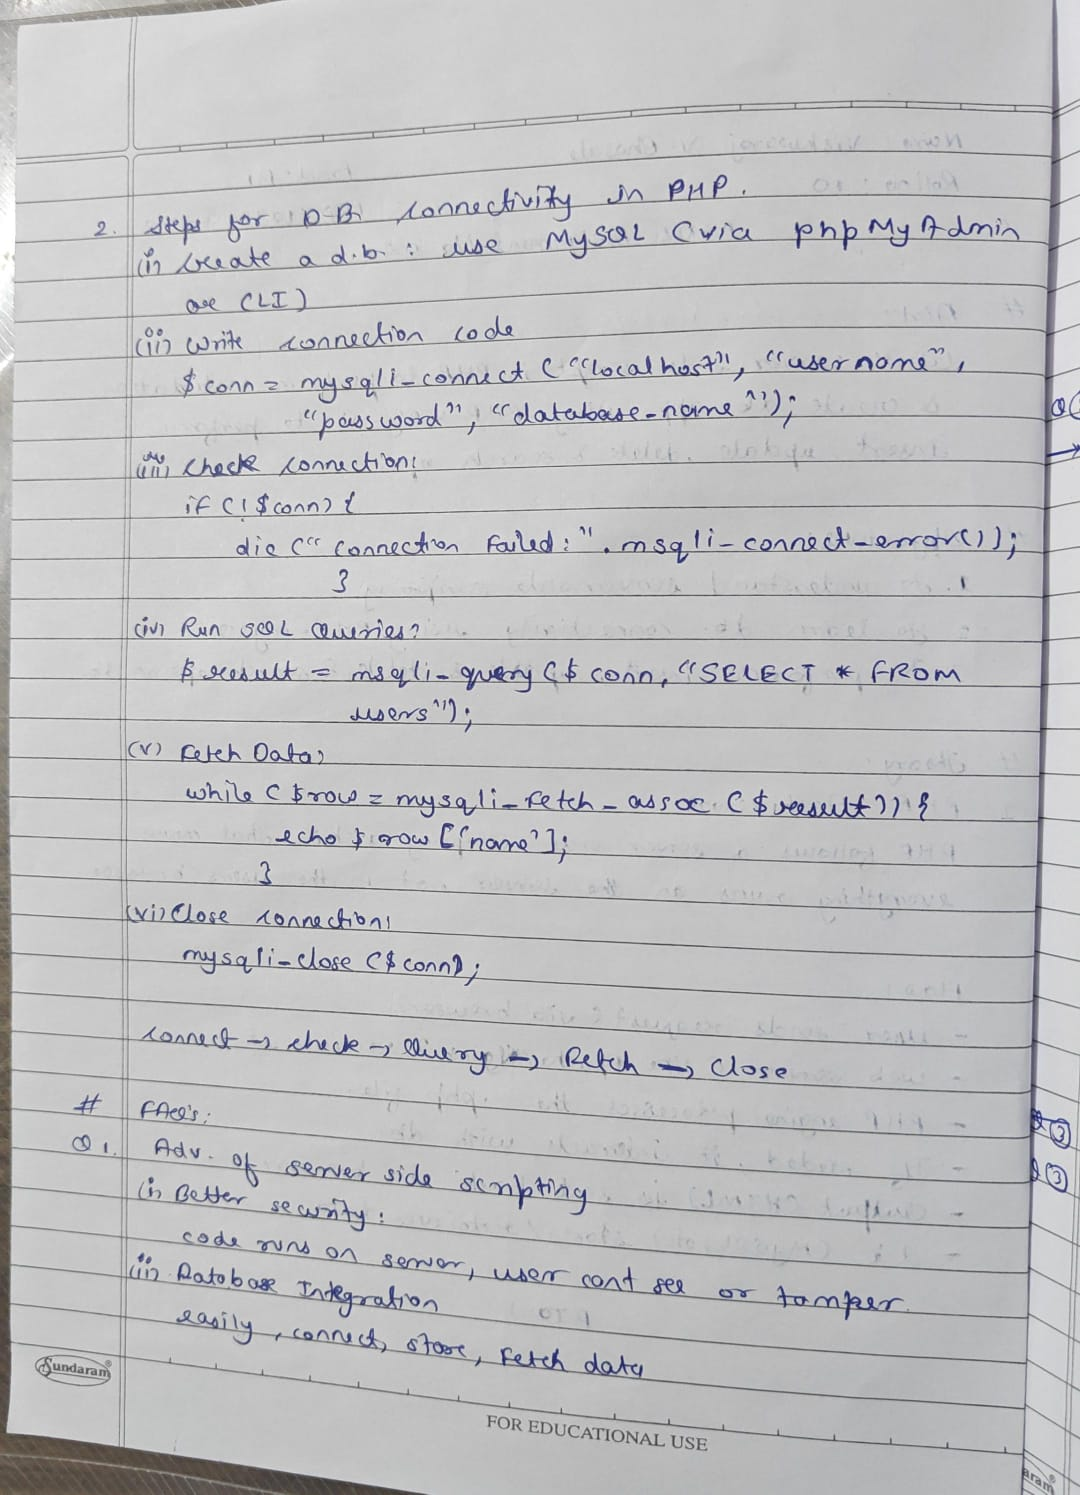 2. Steps for D.B. connectivity in PHP.
(i) Create a d.b. : use MySQL (via phpMyAdmin
or CLI)
(ii) Write connection code
$conn = mysqli-connect ("localhost", "username",
"password", "database-name");
(iii) Check connection:
if (!$conn) {
die ("connection Failed:" . msqli-connect-error());
}
(iv) Run SQL Queries:
$result = msqli-query ($conn, "SELECT * FROM
users");
(v) Fetch Data:
while ($row = mysqli-fetch-assoc ($result)) {
echo $row ['name'];
}
(vi) Close connection:
mysqli-close ($conn);
connect → check → Query → Fetch → Close
# FAQ's:
Q1. Adv. of server side scripting.
(i) Better security:
code runs on server, user cant see or tamper.
(ii) Database Integration
easily, connect, store, Fetch data
Sundaram
FOR EDUCATIONAL USE